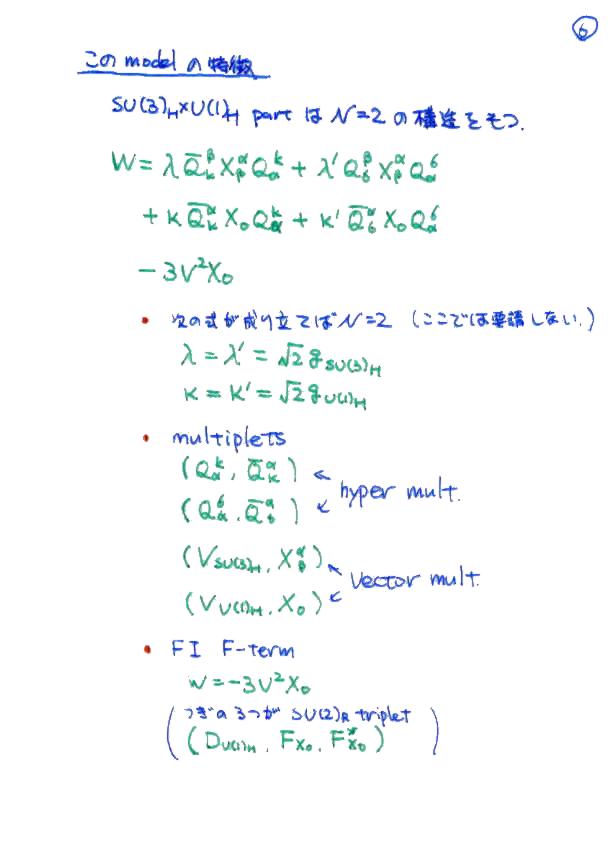 ⑥
この model の特徴
SU(3)_H×U(1)_H part は N=2 の構造をもつ.
W = λ Q̄_k^β X_β^α Q_α^k + λ' Q_6^β X_β^α Q_α^6
+ κ Q̄_k^α X_0 Q_α^k + κ' Q̄_6^α X_0 Q_α^6
- 3V²X_0
• 次の式が成り立てば N=2 (ここでは要請しない.)
λ = λ' = √2 g_SU(3)_H
κ = κ' = √2 g_U(1)_H
• multiplets
(Q_α^k, Q̄_k^α) ← hyper mult.
(Q_α^6, Q̄_6^α) ↙
(V_SU(3)_H, X_β^α) ↖ Vector mult.
(V_U(1)_H, X_0) ↙
• FI F-term
W = -3V²X_0
(つぎの3つが SU(2)_R triplet
(D_U(1)_H, F_X_0, F*_X_0))